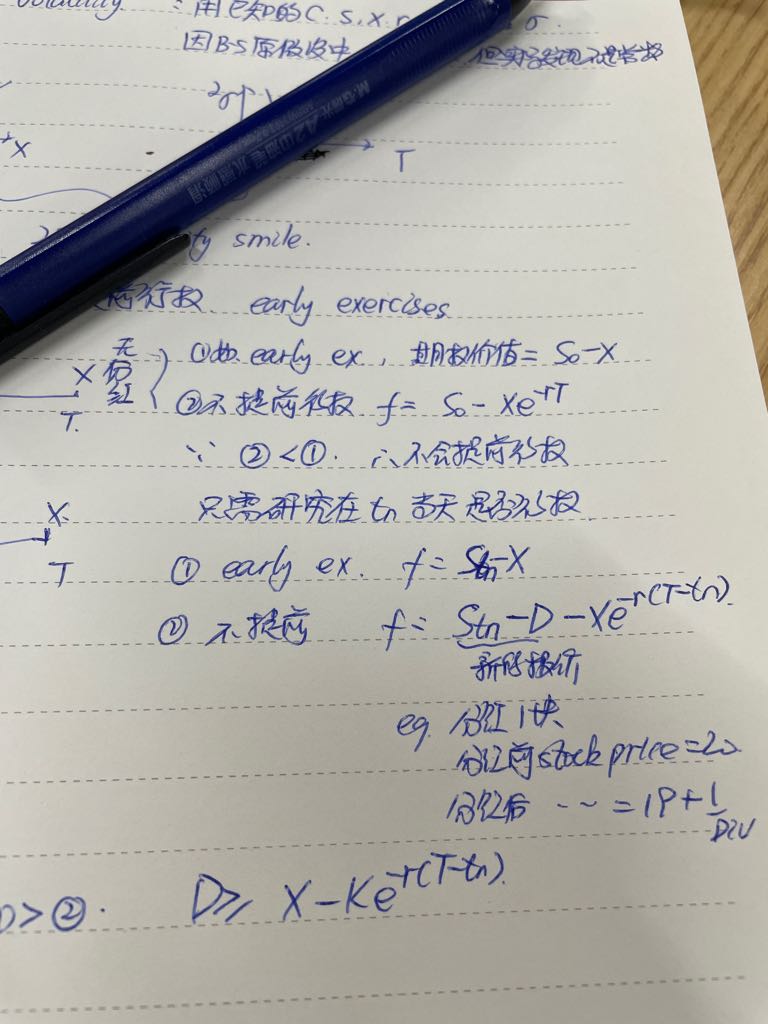 volatility : 用已知的 C. S. X. r σ.
因 B-S 原假设中 但实际发现不是常数
X
T
smile.
前行权. early exercises
无分红 ①如 early ex, 期权价值 = S₀-X
X
②不提前行权 f = S₀ - Xe^-rT
T.
∵ ②<①. ∴不会提前行权
只需研究在 tn 当天是否行权
X.
T
① early ex. f = Stn-X
② 不提前 f = Stn-D-Xe^-r(T-tn).
新的报价
eg. 分红1块
分红前 stock price=20
分红后 ... = 19+1
DIV
①>②. D⩾ X-Ke^-r(T-tn).
M&G